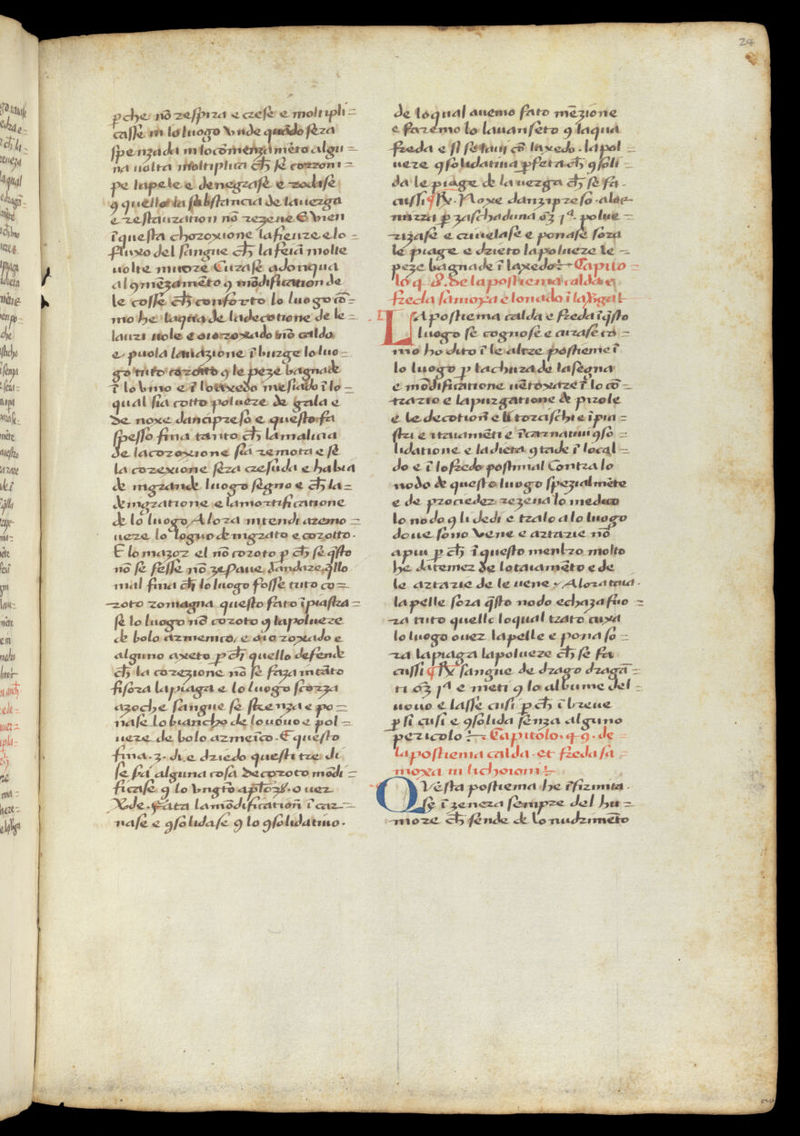 24
p̄che nō respira e crese e moltipli=
casse in lo luogo vnde quādo sera
spenzada in lo comenzamēto algu=
na uolta moltiplica ch̄ se corroni=
pe la pele e denegrase e rodase
ꝯ quello la substancia de la uerga
e restauration nō rezene E vien
ī questa choroxione la fieure e lo=
fluxo del sangue ch̄ la feiā molte
uolte morze Curase adonqua
al ꝯmēzamēto ꝯ mōdification de
le cosse ch̄ conforto lo luogo cō=
mo he laqua de la decotione de le=
lauri uole e oio roxado nō caldo
e puola lauazione ī burge lo luo=
go tuto coroto ꝯ le peze bagnade
ī lo vino e ī lo axedo mesiado ī lo=
qual sia cotto poluere de gala e
de noxe dancipreso e questo fa
spesso fina tanto ch̄ la malicia
de la coroxione sia remota e se
la corexione sera cresuda e habia
de nigrande luogo segno e ch̄ la=
denigratione e la mortificatione
de lo luogo Alora intendi a remo=
uere lo logno denigrato e corotto.
E lo mazor el nō coroto p̄ ch̄ se q̄sto
nō se fesse nō zepaue dandare q̄llo
mal fina ch̄ lo luogo fosse tuto co=
roto romagna questo fato ī piastra=
se lo luogo nō coroto ꝯ la poluere
de bolo armenico, e oio roxado e
alguno axeto p̄ ch̄ quello defende
ch̄ la corezione nō se faza intāto
fisora la piaga e lo luogo scorza
azoche sangue se strenza e po=
nase lo biancho de lo uouo e pol=
uere de bolo armeico. E questo
fina .3. di e driedo questi tre di
se fia alguna cosa de coroto mōdi=
ficase ꝯ lo vngto apłoꝝ. o uer
Xde. fata la mōdification ī car=
nase e ꝯsolidase ꝯ lo ꝯsolidatiuo.
de lo qual auemo fato mēzione
e faremo lo lauanseto ꝯ laqua
freda e si se laui cō laxedo. la pol=
uere ꝯsolidatiua p̄feta ch̄ ꝯsoli=
da le piage de la uerga ch̄ se fa.
cussi ¶ ℞. Noxe danzipreso. aloe
mirra p̄ zaschaduna oʒ jᵃ. polue=
rizase e criuelase e ponase sora
le piage e drieto la poluere le=
peze bagnade ī laxedo: Capito=
lo q. 8. de la postiema calda e
freda samoxa e lonado ī la vga
La postiema calda e freda ī q̄sto
luogo se cognose e curase co=
mo ho dito ī le altre postieme ī
lo luogo p̄ la chura de la segna
e modificatione uētoxare ī lo cō=
trario e la purgatione de pirole
e le decotion e li trocischi e ī pia=
stri e itauamēti e īcarnatiui ꝯso=
lidatione e la dieta ꝯtade ī local=
do e ī lo fredo postimal Contra lo
nodo de questo luogo spezialmēte
e de proceder rezena lo medico
lo nodo ꝯ li dedi e tralo a lo luogo
doue sono vene e artarie nō
apui p̄ ch̄ ī questo menbro molto
he da temer de lo tauamēto e de
le artarie de le uene. Alora taia.
la pelle sora q̄sto nodo e chaza fuo=
ra tuto quello loqual trato cuxa
lo luogo ouer la pelle e pona so=
ra la piaga la poluere ch̄ se fa
cussi ¶ ℞ sangue de drago dragā=
ti oʒ jᵃ e meti ꝯ lo albume del=
uouo e lasse cusi p̄ ch̄ ī breue
p̄ si cusi e ꝯsolida senza alguno
pericolo: Capitolo. q 9. de=
la postiema calda. et freda sa=
moxa in li choioni:
Questa postiema he ī firmita.
Se ī zenera sempre del hu=
more ch̄ sende de lo nudrimēto